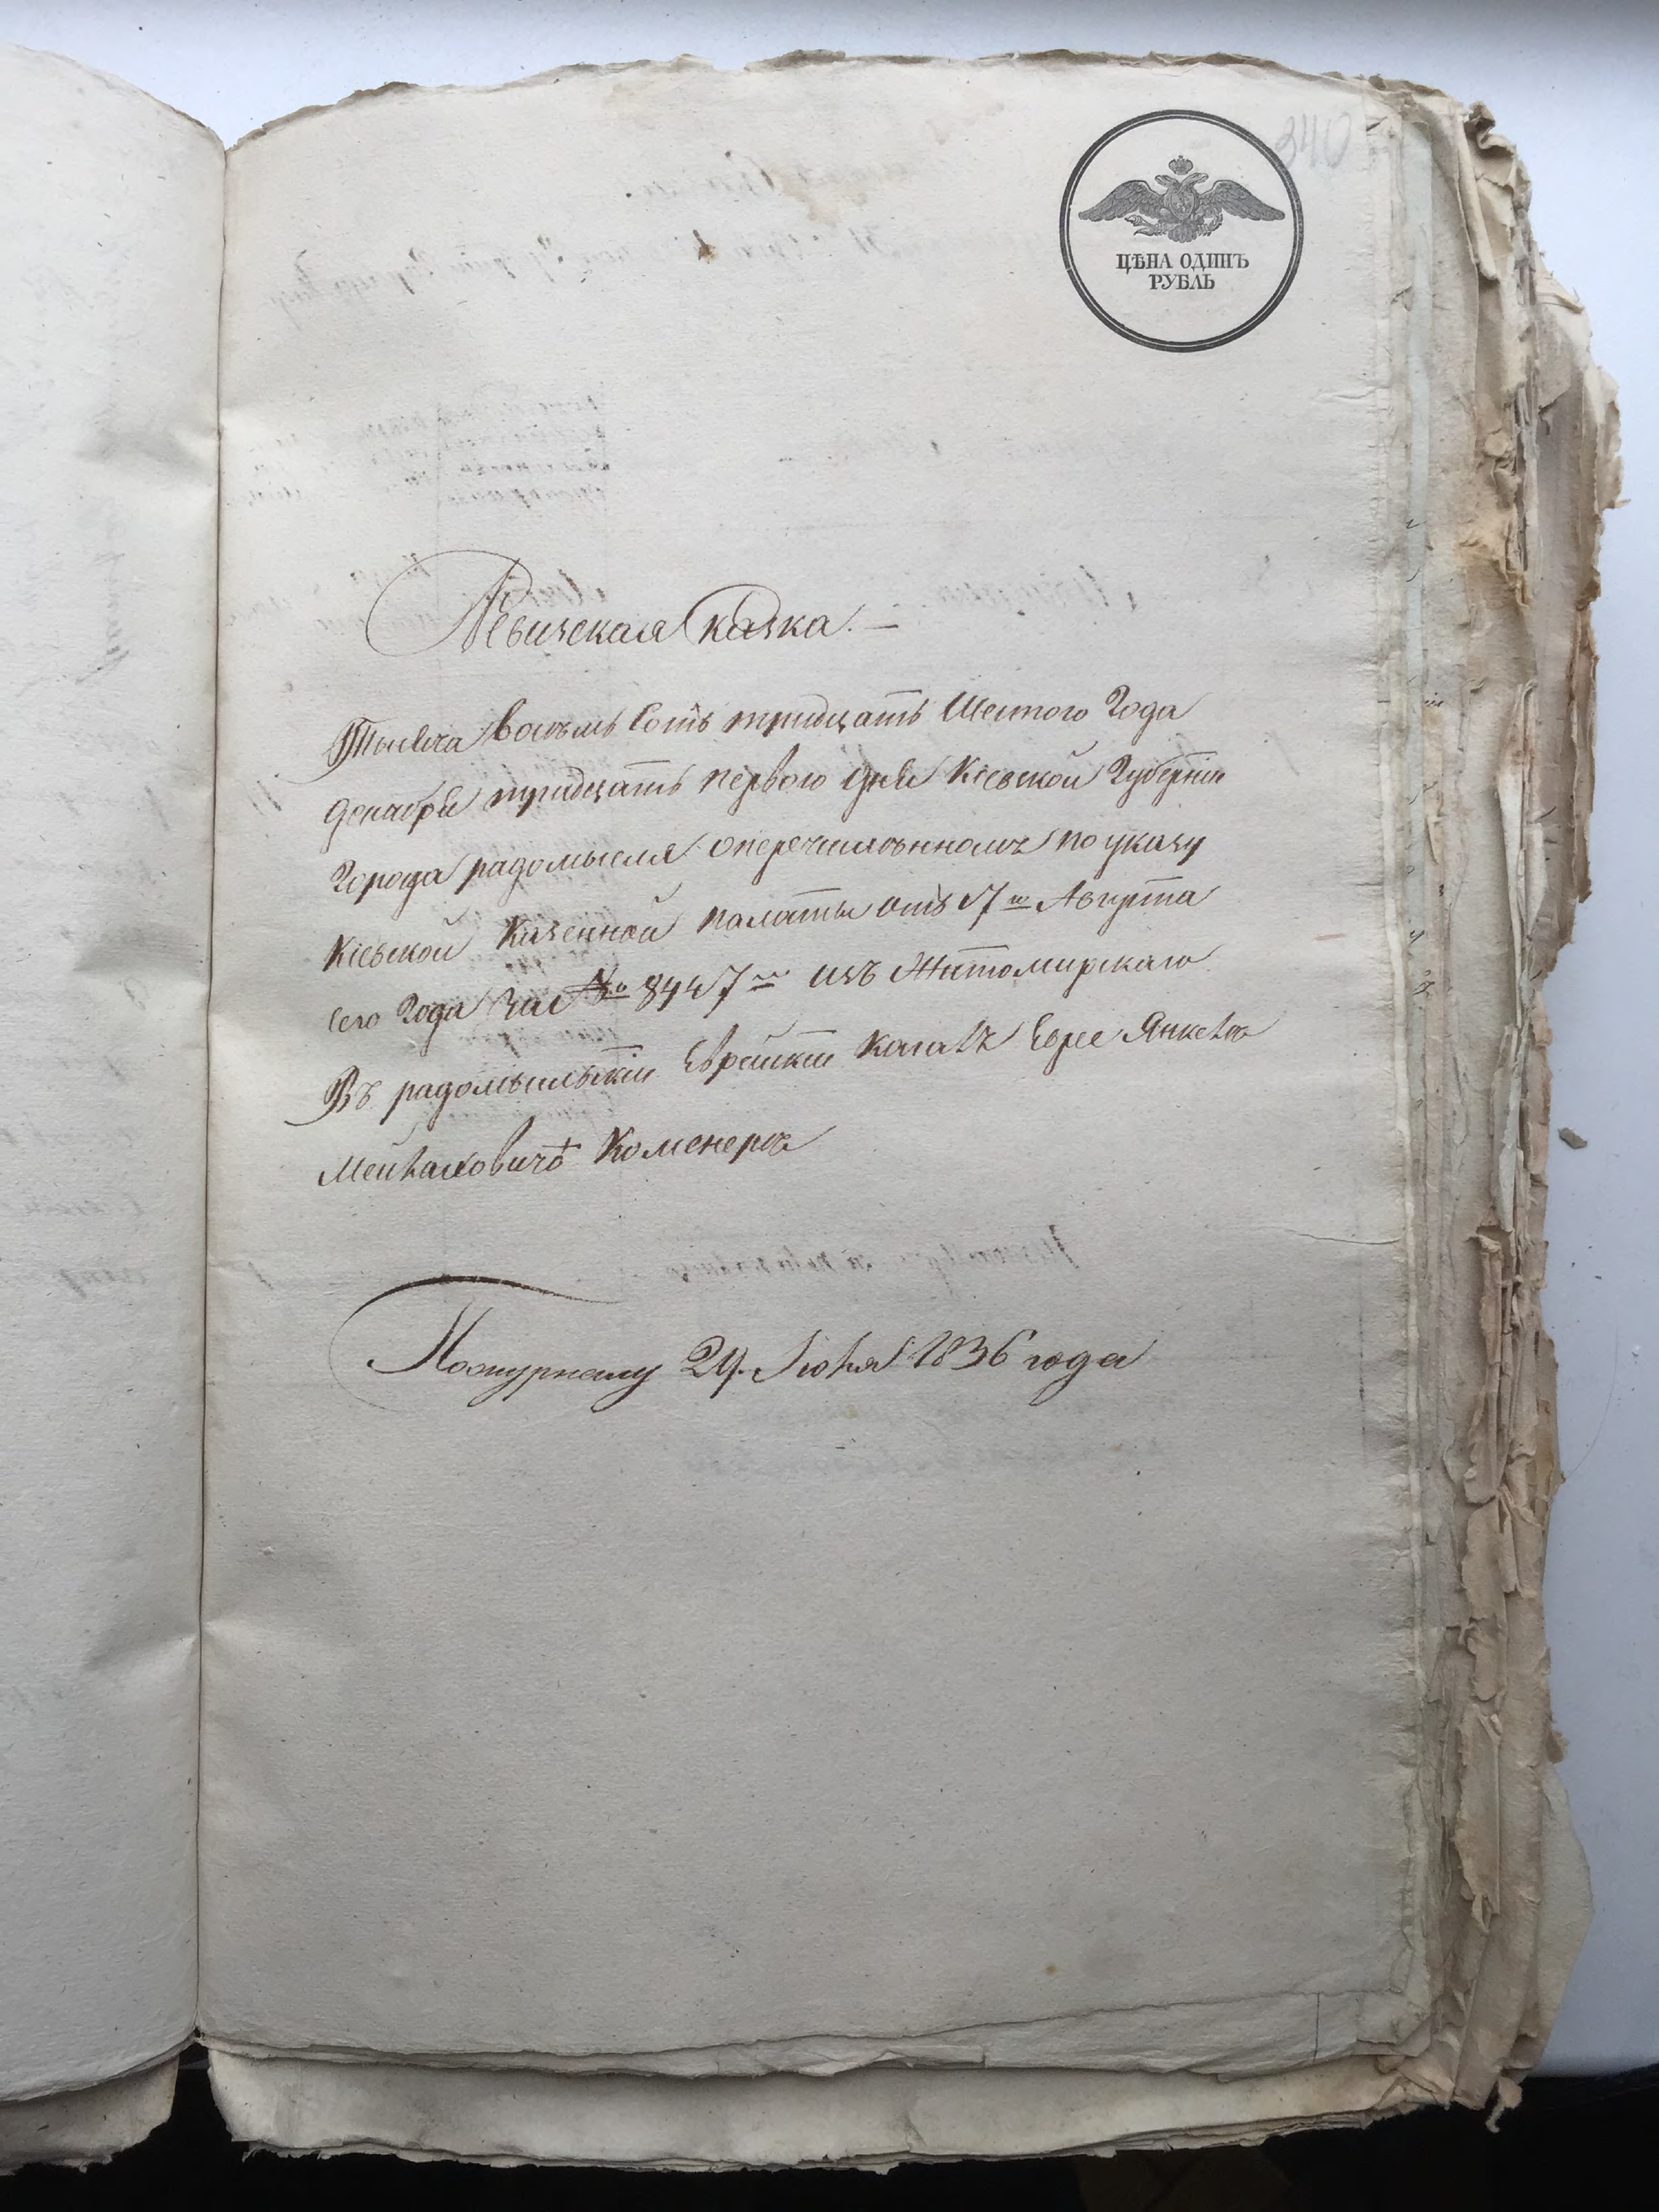 340
ЦѢНА ОДИНЪ
РУБЛЬ
Ревизская Сказка. —
Тысяча восемь Сотъ тридцать Шестого Года
декабря тридцать первого дня Кіевской Губерніи
Города радомысля оперечисленномъ по указу
Кіевской Казенной палаты отъ 17го Августа
сего Года за №
изъ Житомирскаго
Въ радомысльскій Еврейскій Кагалъ Еврее Янкелѣ
Коменеръ
1836 года